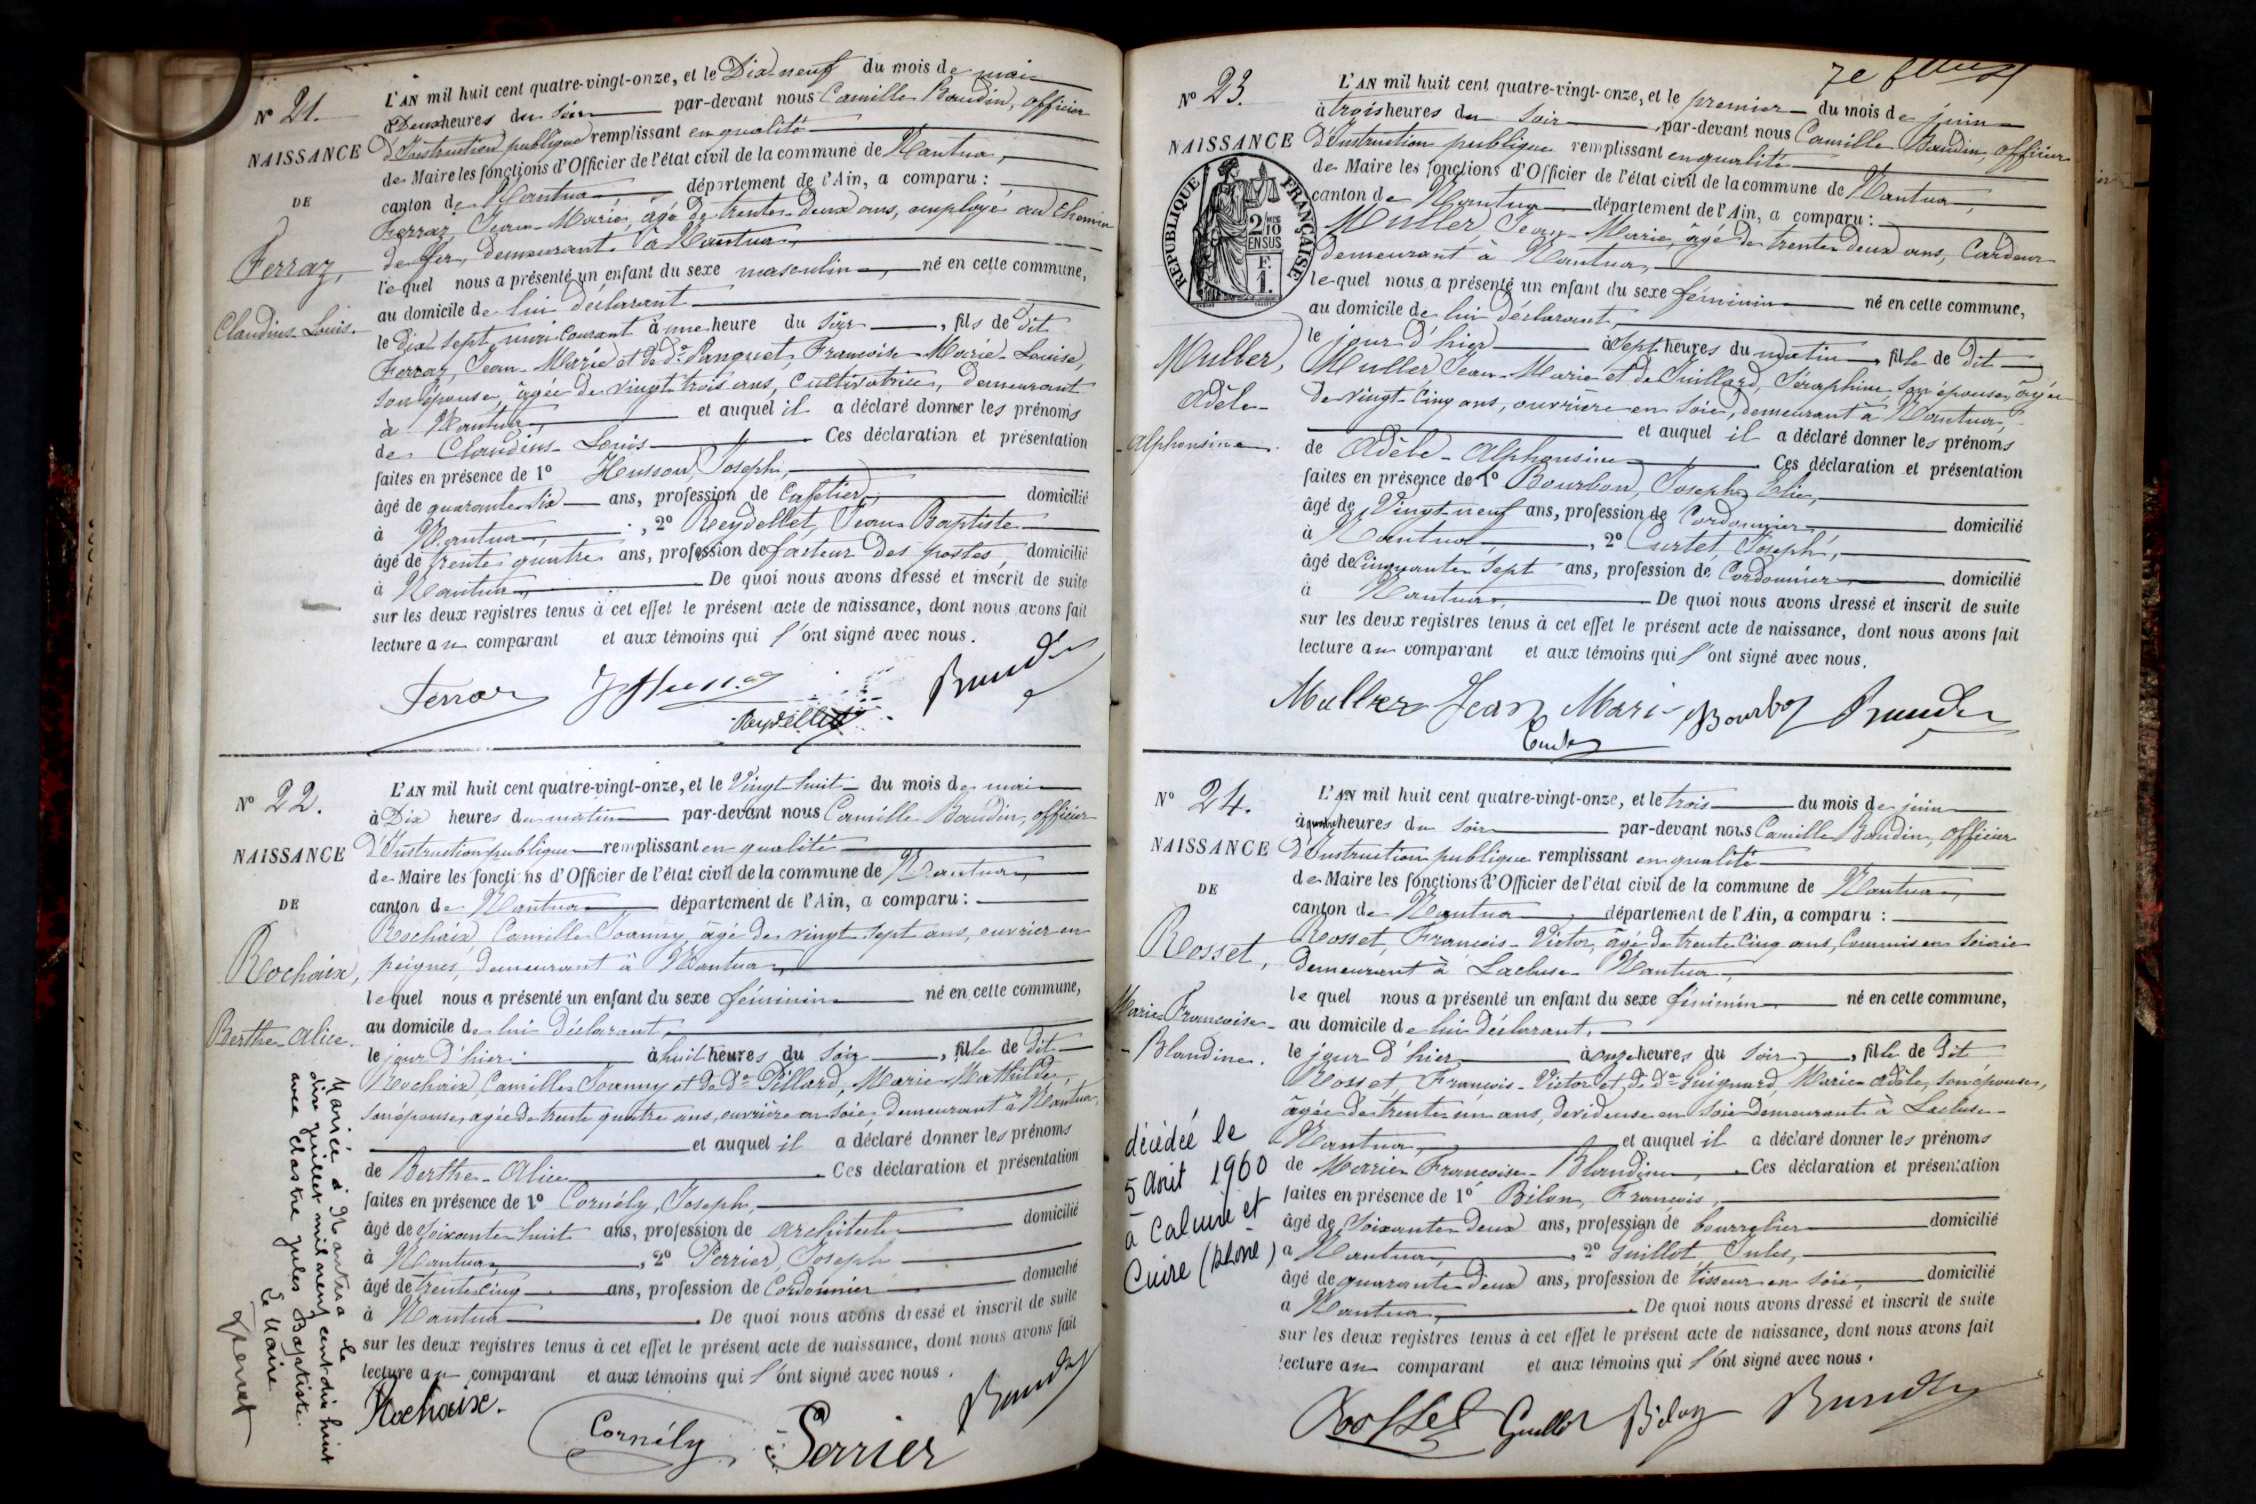 N° 21.
NAISSANCE
DE
Ferraz,
Claudius-Louis.
L'AN mil huit cent quatre-vingt-onze, et le Dix neuf du mois de mai
à Deux heures du soir par-devant nous Camille Baudin, officier
d'Instruction publique remplissant en qualité
de Maire les fonctions d'Officier de l'état civil de la commune de Nantua,
canton de Nantua, département de l'Ain, a comparu :
Ferraz, Jean-Marie, âgé de trente-deux ans, employé au chemin
de fer, demeurant à Nantua,
lequel nous a présenté un enfant du sexe masculin, né en cette commune,
au domicile de lui déclarant
le dix sept mai courant à une heure du soir, fils de dit
Ferraz, Jean-Marie et de de Panquet, Françoise-Marie-Louise,
son épouse, âgée de vingt trois ans, cultivatrice, demeurant
à Nantua, et auquel il a déclaré donner les prénoms
de Claudius-Louis Ces déclaration et présentation
faites en présence de 1° Husson, Joseph,
âgé de quarante six ans, profession de Cafetier, domicilié
à Nantua, , 2° Reydellet, Jean Baptiste
âgé de trente quatre ans, profession de facteur des postes, domicilié
à Nantua, De quoi nous avons dressé et inscrit de suite
sur les deux registres tenus à cet effet le présent acte de naissance, dont nous avons fait
lecture au comparant et aux témoins qui l'ont signé avec nous.
Ferraz JHusson Baudin
Reydellet
N° 22.
NAISSANCE
DE
Rochaix,
Berthe-Alice.
Mariée à Nantua le
dix juillet mil neuf cent dix huit
avec Clastre Jules Baptiste.
Le Maire
L'AN mil huit cent quatre-vingt-onze, et le Vingt huit du mois de mai
à Dix heures du matin par-devant nous Camille Baudin, officier
d'Instruction publique remplissant en qualité
de Maire les fonctions d'Officier de l'état civil de la commune de Nantua,
canton de Nantua département de l'Ain, a comparu :
Rochaix, Camille Joanny, âgé de vingt sept ans, ouvrier en
peignes, demeurant à Nantua,
lequel nous a présenté un enfant du sexe féminin né en cette commune,
au domicile de lui déclarant,
le jour d'hier à huit heures du soir, fille de dit
Rochaix, Camille Joanny et de de Pillard, Marie Mathilde,
son épouse, agée de trente quatre ans, ouvrière en soie, demeurant à Nantua,
et auquel il a déclaré donner les prénoms
de Berthe-Alice Ces déclaration et présentation
faites en présence de 1° Cornély, Joseph,
âgé de soixante huit ans, profession de architecte domicilié
à Nantua, , 2° Perrier, Joseph
âgé de trente cinq ans, profession de Cordonnier domicilié
à Nantua De quoi nous avons dressé et inscrit de suite
sur les deux registres tenus à cet effet le présent acte de naissance, dont nous avons fait
lecture au comparant et aux témoins qui l'ont signé avec nous.
Rochaix. Cornély Perrier Baudin
7e feuillet
N° 23.
NAISSANCE
REPUBLIQUE FRANÇAISE
2/10 EN SUS
F. 1.
Muller,
Adèle-
-Alphonsine.
L'AN mil huit cent quatre-vingt-onze, et le premier du mois de juin
à trois heures du soir par-devant nous Camille Baudin, officier
d'Instruction publique remplissant en qualité
de Maire les fonctions d'Officier de l'état civil de la commune de Nantua,
canton de Nantua département de l'Ain, a comparu :
Muller Jean-Marie, âgé de trente deux ans, Cardeur
demeurant à Nantua,
lequel nous a présenté un enfant du sexe féminin né en cette commune,
au domicile de lui déclarant,
le jour d'hier à sept heures du matin, fille de dit
Muller Jean-Marie et de Juillard, Séraphine, son épouse, âgée
de vingt-cinq ans, ouvrière en soie, demeurant à Nantua,
et auquel il a déclaré donner les prénoms
de Adèle-Alphonsine Ces déclaration et présentation
faites en présence de 1° Bourbon, Joseph Elie,
âgé de Vingt-neuf ans, profession de Cordonnier, domicilié
à Nantua, , 2° Curtet, Joseph,
âgé de cinquante sept ans, profession de Cordonnier domicilié
à Nantua, De quoi nous avons dressé et inscrit de suite
sur les deux registres tenus à cet effet le présent acte de naissance, dont nous avons fait
lecture au comparant et aux témoins qui l'ont signé avec nous.
Muller Jean Marie Bourbon Baudin
Curtet
N° 24.
NAISSANCE
DE
Rosset,
Marie-Françoise-
-Blandine.
décédée le
5 août 1960
à Caluire et
Cuire (Rhône)
L'AN mil huit cent quatre-vingt-onze, et le trois du mois de juin
à quatre heures du soir par-devant nous Camille Baudin, officier
d'Instruction publique remplissant en qualité
de Maire les fonctions d'Officier de l'état civil de la commune de Nantua,
canton de Nantua, département de l'Ain, a comparu :
Rosset, François-Victor, âgé de trente cinq ans, Commis en soierie
demeurant à Lacluse-Nantua,
lequel nous a présenté un enfant du sexe féminin né en cette commune,
au domicile de lui déclarant,
le jour d'hier à onze heures du soir, fille de dit
Rosset, François-Victor et de de Guignard, Marie-Adèle, son épouse,
âgée de trente un ans, devideuse en soie demeurant à Lacluse-
Nantua, et auquel il a déclaré donner les prénoms
de Marie-Françoise-Blandine, Ces déclaration et présentation
faites en présence de 1° Bilon, François,
âgé de soixante-deux ans, profession de bourrelier domicilié
à Nantua, , 2° Guillot, Jules,
âgé de quarante-deux ans, profession de tisseur en soie, domicilié
à Nantua, De quoi nous avons dressé et inscrit de suite
sur les deux registres tenus à cet effet le présent acte de naissance, dont nous avons fait
lecture au comparant et aux témoins qui l'ont signé avec nous.
Rosset Guillot Bilon Baudin